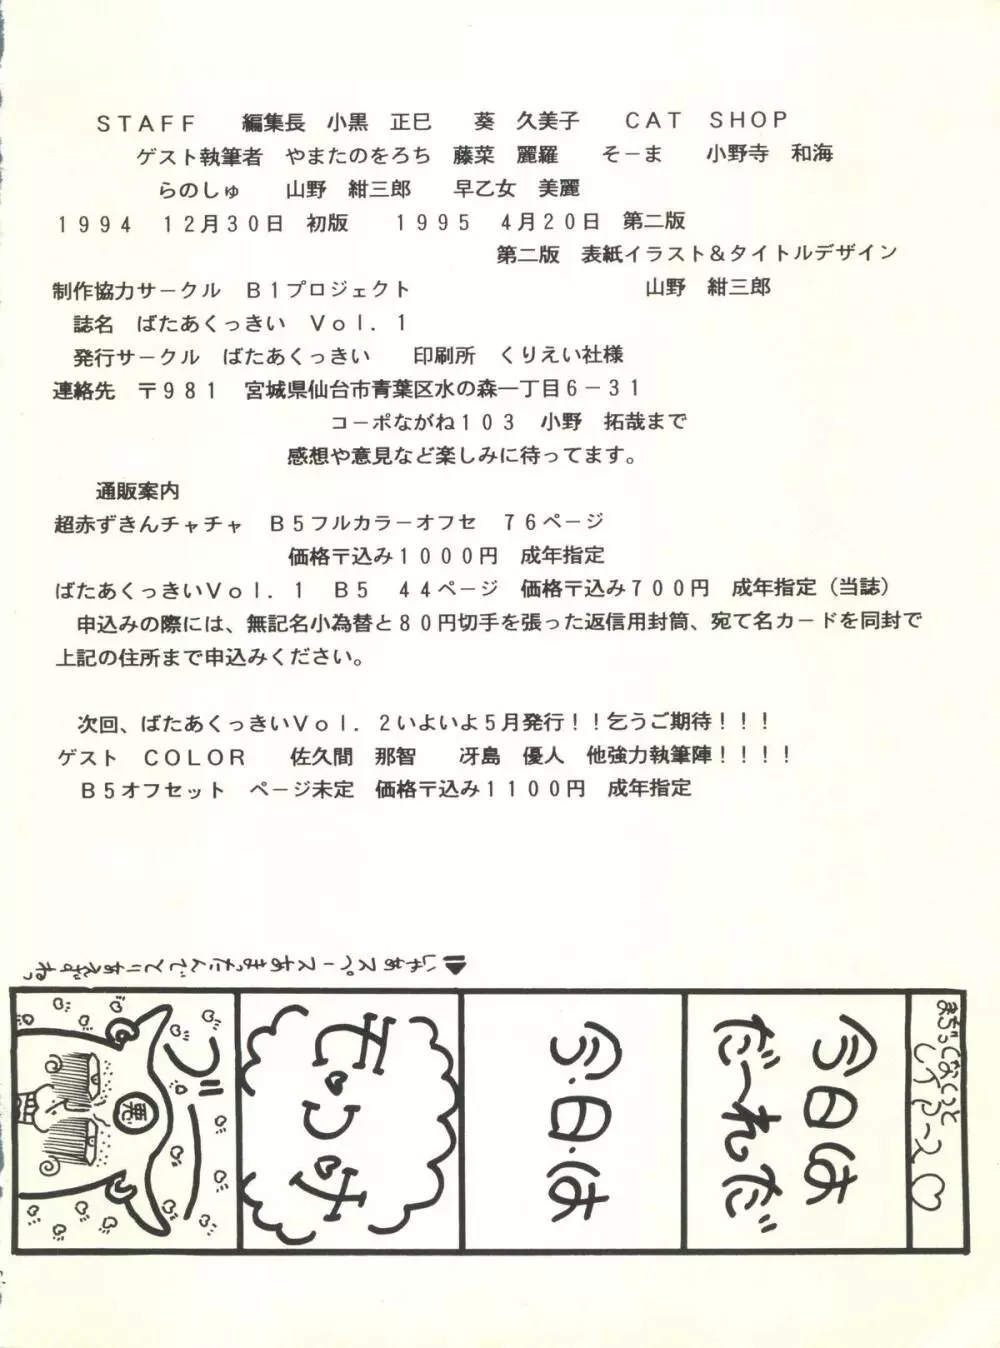 ＳＴＡＦＦ　　編集長　小黒　正巳　　葵　久美子　　ＣＡＴ　ＳＨＯＰ
ゲスト執筆者　やまたのをろち　藤菜　麗羅　　そーま　　小野寺　和海
らのしゅ　　山野　紺三郎　　早乙女　美麗
１９９４　１２月３０日　初版　　１９９５　４月２０日　第二版
第二版　表紙イラスト＆タイトルデザイン
制作協力サークル　Ｂ１プロジェクト　　山野　紺三郎
誌名　ばたあくっきい　Ｖｏｌ．１
発行サークル　ばたあくっきい　　印刷所　くりえい社様
連絡先　〒９８１　宮城県仙台市青葉区水の森一丁目６－３１
コーポながね１０３　小野　拓哉まで
感想や意見など楽しみに待ってます。
通販案内
超赤ずきんチャチャ　Ｂ５フルカラーオフセ　７６ページ
価格〒込み１０００円　成年指定
ばたあくっきいＶｏｌ．１　Ｂ５　４４ページ　価格〒込み７００円　成年指定（当誌）
申込みの際には、無記名小為替と８０円切手を張った返信用封筒、宛て名カードを同封で
上記の住所まで申込みください。
次回、ばたあくっきいＶｏｌ．２いよいよ５月発行！！乞うご期待！！！
ゲスト　ＣＯＬＯＲ　　佐久間　那智　　冴島　優人　他強力執筆陣！！！！
Ｂ５オフセット　ページ未定　価格〒込み１１００円　成年指定
今日は
だ〜れだ
今・日・は
ブー
悪